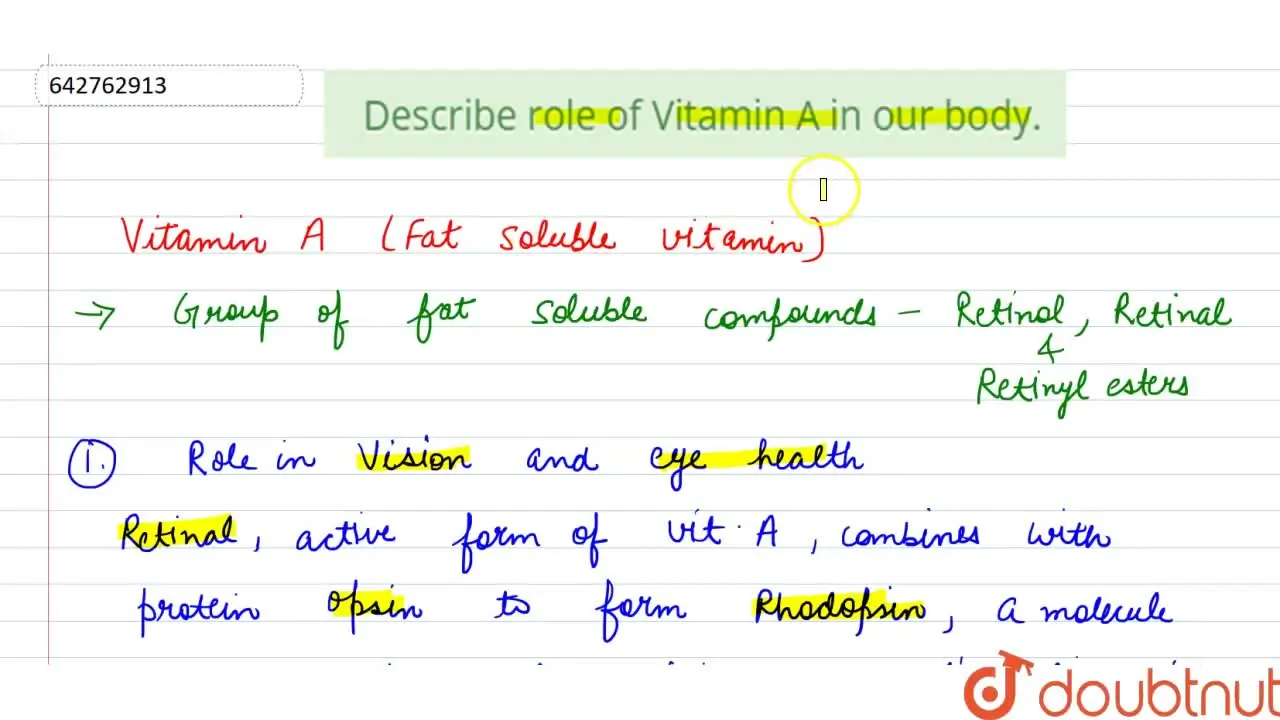 642762913
Describe role of Vitamin A in our body.
Vitamin A (Fat soluble vitamin)
→ Group of fat soluble compounds - Retinol, Retinal
&
Retinyl esters
1. Role in Vision and eye health
Retinal, active form of vit. A, combines with
protein opsin to form Rhodopsin, a molecule
doubtnut